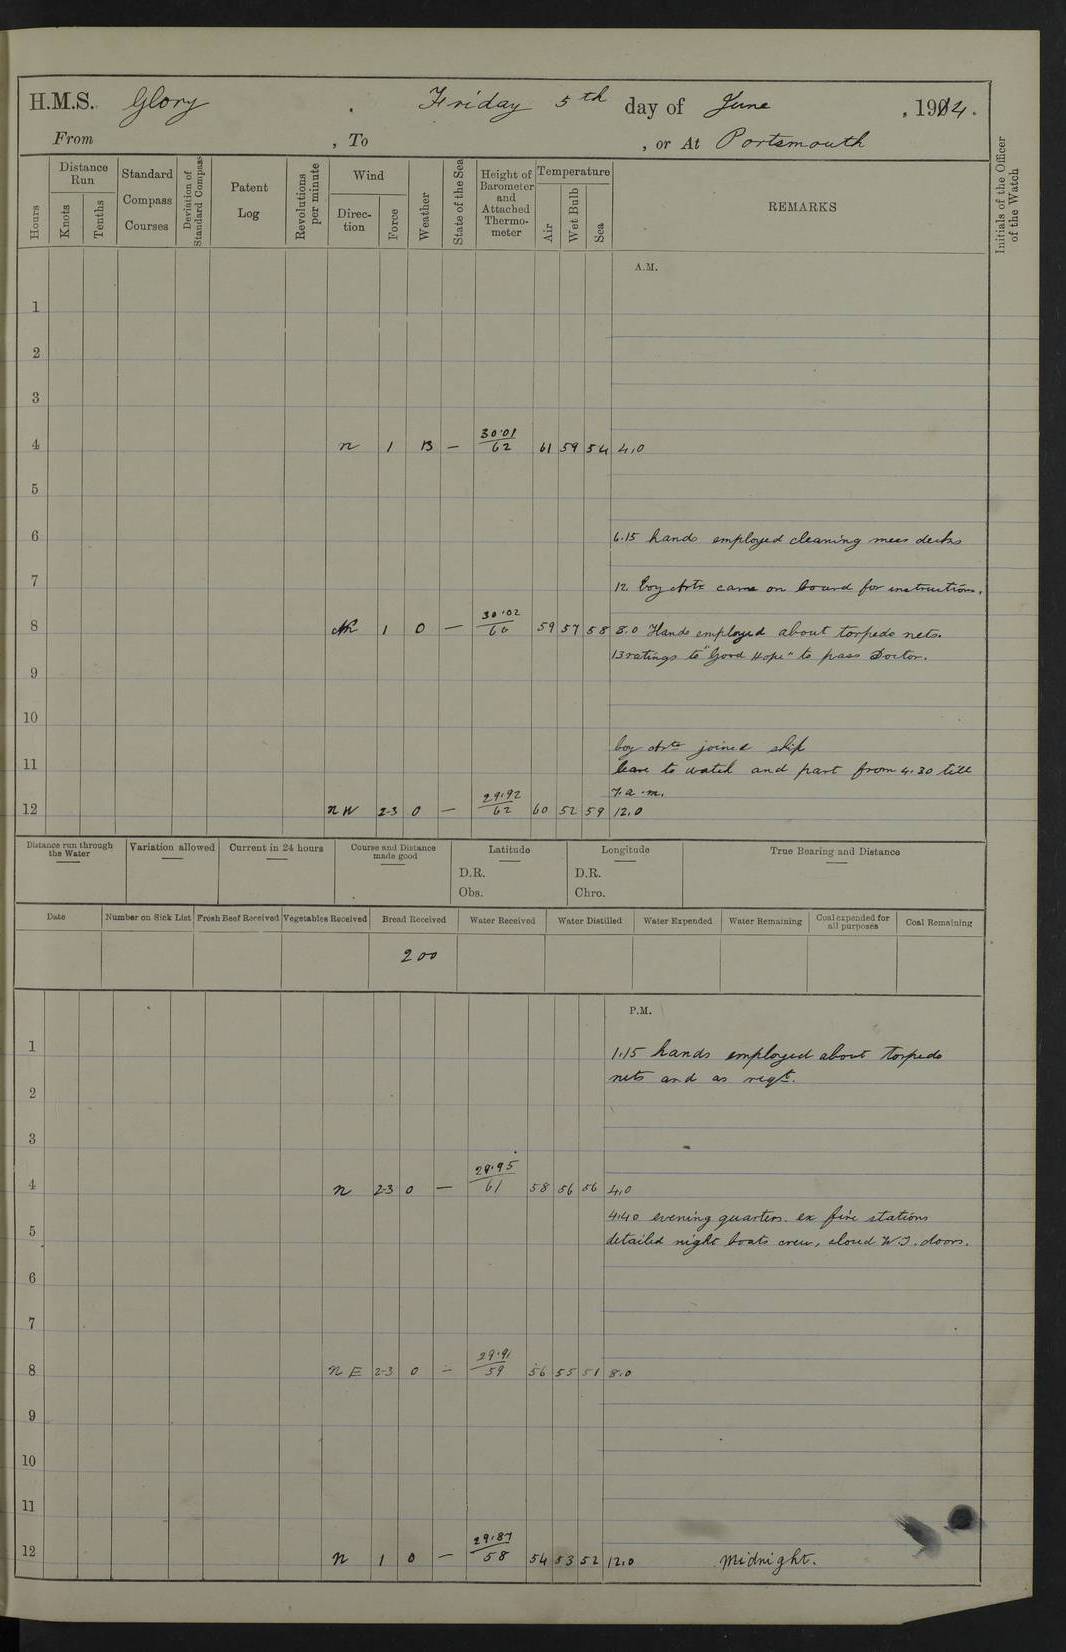 H.M.S. Glory . Friday 5th day of June , 1914.
From , To , or At Portsmouth
Hours
Distance Run
Knots
Tenths
Standard Compass Courses
Deviation of Standard Compass
Patent Log
Revolutions per minute
Wind
Direction
Force
Weather
State of the Sea
Height of Barometer and Attached Thermometer
Temperature
Air
Wet Bulb
Sea
REMARKS
Initials of the Officer of the Watch
A.M.
1
2
3
4 N 1 B — 30·01/62 61 59 54 4.0
5
6 6.15 hands employed cleaning mess decks
7 12 boy Arts came on board for instructions.
8 1 0 — 30·02/60 59 57 58 8.0 Hands employed about torpedo nets.
13 ratings to "Good Hope" to pass Doctor.
9
10
boy Arts joined ship
11 leave to watch and part from 4.30 till
7.a.m.
12 NW 2-3 0 — 29·92/62 60 52 59 12.0
Distance run through the Water
Variation allowed
Current in 24 hours
Course and Distance made good
Latitude
D.R.
Obs.
Longitude
D.R.
Chro.
True Bearing and Distance
Date
Number on Sick List
Fresh Beef Received
Vegetables Received
Bread Received
Water Received
Water Distilled
Water Expended
Water Remaining
Coal expended for all purposes
Coal Remaining
200
P.M.
1 1.15 hands employed about torpedo
nets and as reqt.
2
3
4 N 2-3 0 — 29·95/61 58 56 56 4.0
4.40 evening quarters. ex fire stations
5 detailed night boats crew, closed W.T. doors.
6
7
8 NE 2-3 0 — 29·91/59 56 55 51 8.0
9
10
11
12 N 1 0 — 29·87/58 54 53 52 12.0 Midnight.